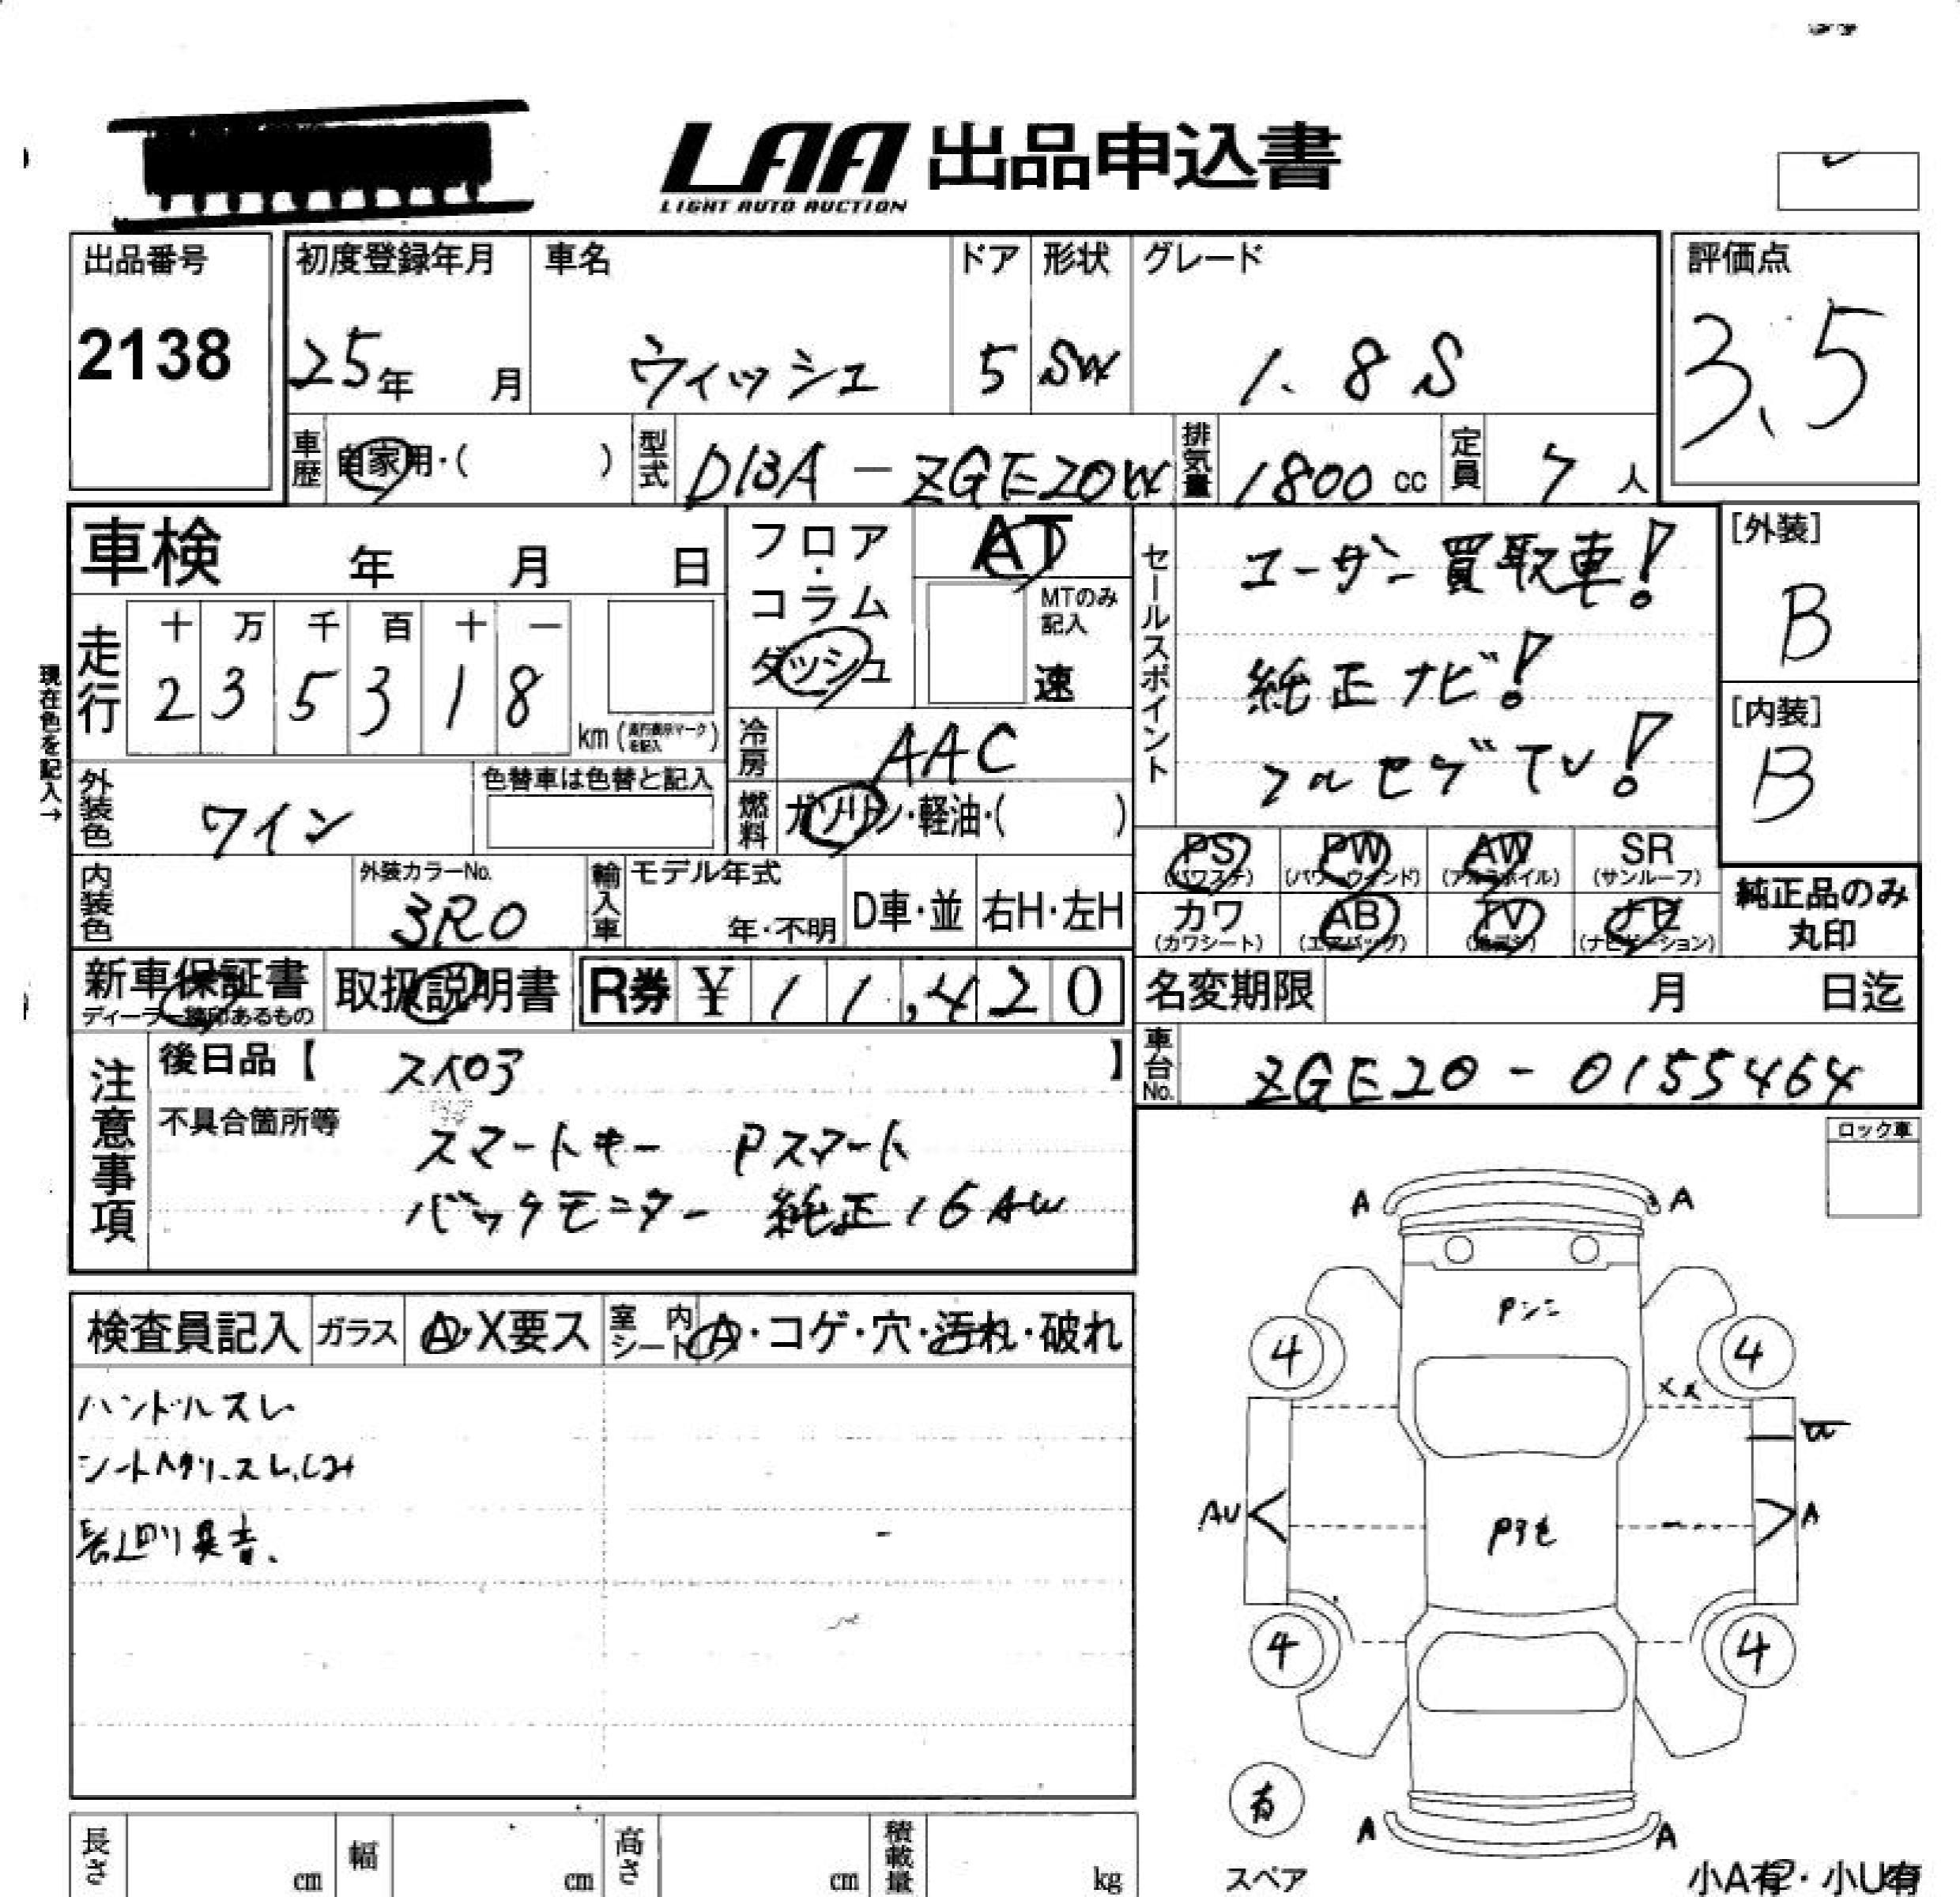 LAA 出品申込書
LIGHT AUTO AUCTION
出品番号
2138
初度登録年月
25年 月
車名
ウィッシュ
ドア
5
形状
SW
グレード
1.8 S
評価点
3.5
車歴
自家用・( )
型式
DBA-ZGE20W
排気量
1800 cc
定員
7 人
車検 年 月 日
走行
十 万 千 百 十 一
2 3 5 3 1 8
km
現在色を記入→
フロア・コラム
ダッシュ
AT
MTのみ記入
速
冷房
AAC
燃料
ガソリン・軽油・( )
セールスポイント
ユーザー買取車!
純正ナビ!
フルセグTV!
[外装]
B
[内装]
B
外装色
ワイン
色替車は色替と記入
内装色
外装カラーNo.
3R0
輸入車
モデル年式
年・不明
D車・並
右H・左H
PS
(パワステ)
PW
(パワーウィンド)
AW
(アルミホイル)
SR
(サンルーフ)
カワ
(カワシート)
AB
(エアバッグ)
TV
(テレビ)
ナビ
(ナビゲーション)
純正品のみ
丸印
新車保証書
ディーラー捺印あるもの
取扱説明書
R券 ¥ 11,420
名変期限 月 日迄
車台No.
ZGE20-0155464
注意事項
後日品【 】
不具合箇所等
スマートキー Pスマート
バックモニター 純正16AW
ロック車
検査員記入
ガラス
A・X要ス
室内シート
A・コゲ・穴・汚れ・破れ
ハンドルスレ
異音、
A A
4 4
AU A
4 4
A A
有
スペア
小A有・小U有
長さ cm
幅 cm
高さ cm
積載量 kg